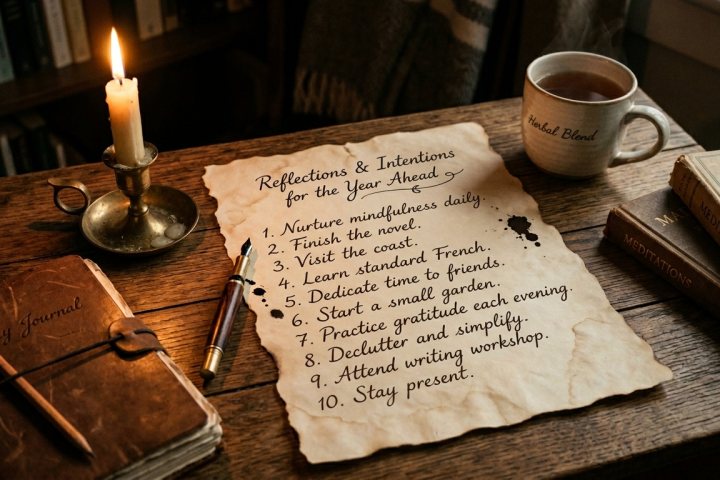 Reflections & Intentions
for the Year Ahead
1. Nurture mindfulness daily.
2. Finish the novel.
3. Visit the coast.
4. Learn standard French.
5. Dedicate time to friends.
6. Start a small garden.
7. Practice gratitude each evening.
8. Declutter and simplify.
9. Attend writing workshop.
10. Stay present.
Herbal Blend
y Journal
MEDITATIONS